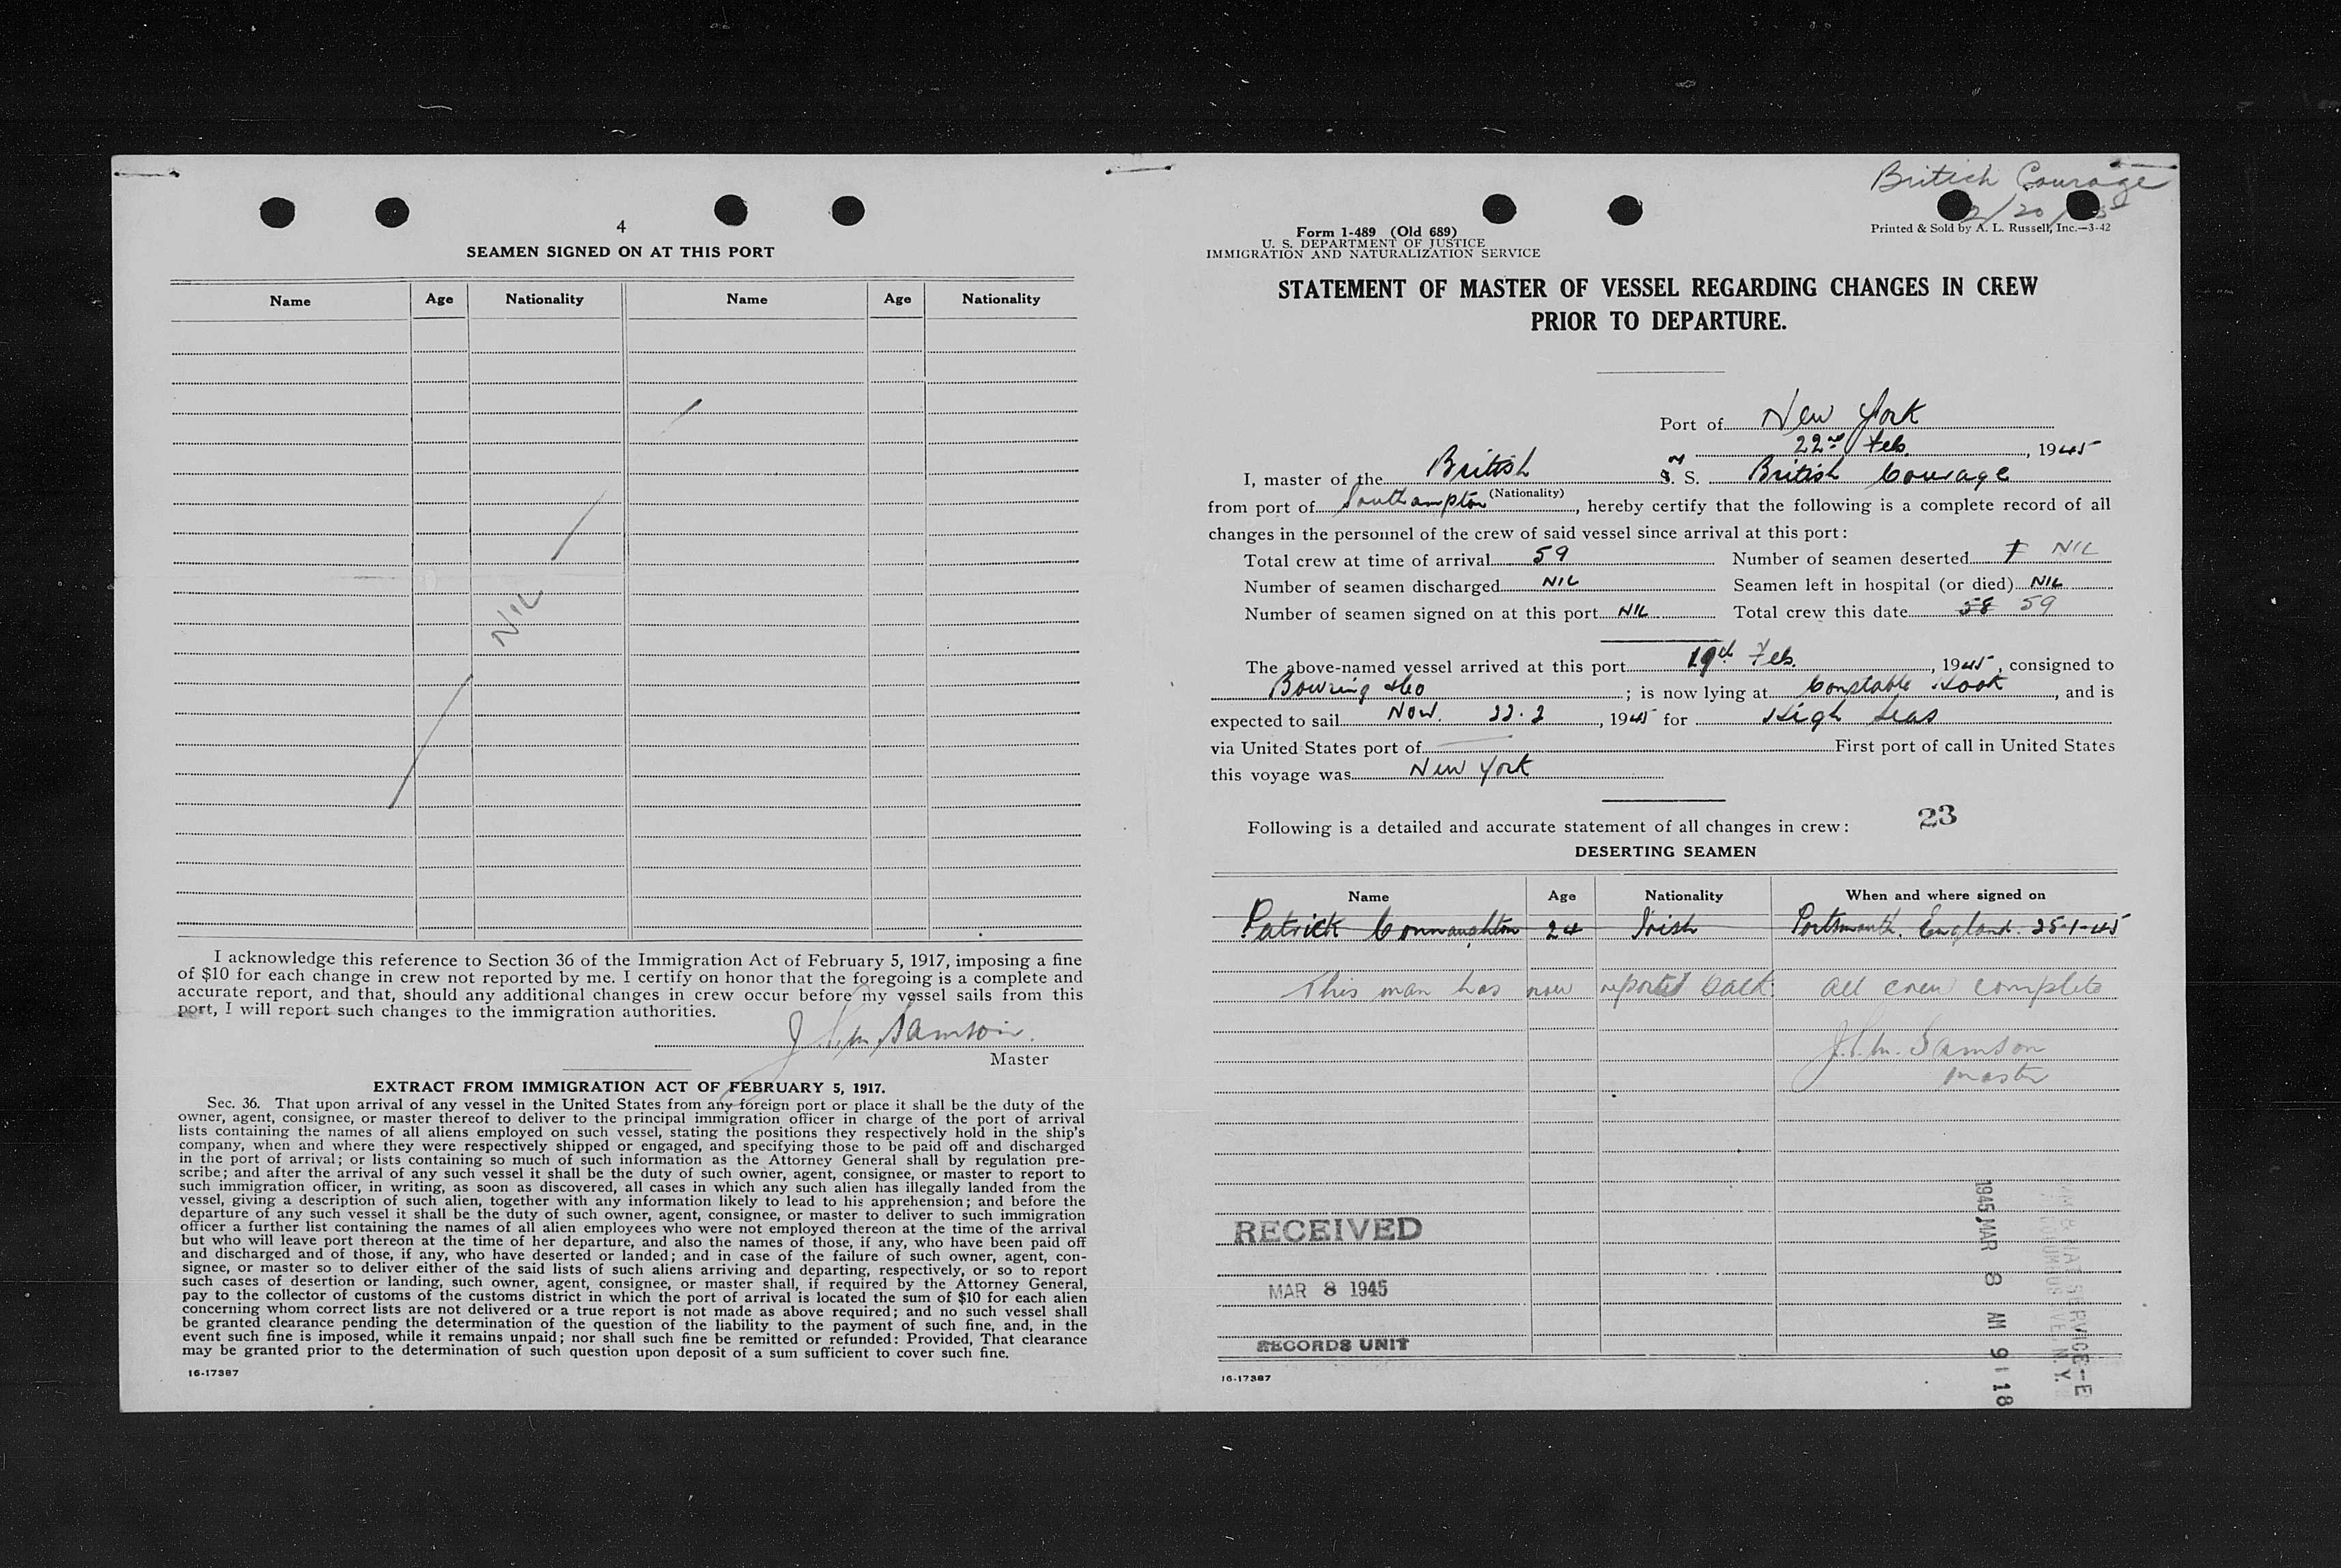 4
SEAMEN SIGNED ON AT THIS PORT
Name Age Nationality Name Age Nationality
NIL
I acknowledge this reference to Section 36 of the Immigration Act of February 5, 1917, imposing a fine
of $10 for each change in crew not reported by me. I certify on honor that the foregoing is a complete and
accurate report, and that, should any additional changes in crew occur before my vessel sails from this
port, I will report such changes to the immigration authorities.
Samson
Master
EXTRACT FROM IMMIGRATION ACT OF FEBRUARY 5, 1917.
Sec. 36. That upon arrival of any vessel in the United States from any foreign port or place it shall be the duty of the
owner, agent, consignee, or master thereof to deliver to the principal immigration officer in charge of the port of arrival
lists containing the names of all aliens employed on such vessel, stating the positions they respectively hold in the ship's
company, when and where they were respectively shipped or engaged, and specifying those to be paid off and discharged
in the port of arrival; or lists containing so much of such information as the Attorney General shall by regulation pre-
scribe; and after the arrival of any such vessel it shall be the duty of such owner, agent, consignee, or master to report to
such immigration officer, in writing, as soon as discovered, all cases in which any such alien has illegally landed from the
vessel, giving a description of such alien, together with any information likely to lead to his apprehension; and before the
departure of any such vessel it shall be the duty of such owner, agent, consignee, or master to deliver to such immigration
officer a further list containing the names of all alien employees who were not employed thereon at the time of the arrival
but who will leave port thereon at the time of her departure, and also the names of those, if any, who have been paid off
and discharged and of those, if any, who have deserted or landed; and in case of the failure of such owner, agent, con-
signee, or master so to deliver either of the said lists of such aliens arriving and departing, respectively, or so to report
such cases of desertion or landing, such owner, agent, consignee, or master shall, if required by the Attorney General,
pay to the collector of customs of the customs district in which the port of arrival is located the sum of $10 for each alien
concerning whom correct lists are not delivered or a true report is not made as above required; and no such vessel shall
be granted clearance pending the determination of the question of the liability to the payment of such fine, and, in the
event such fine is imposed, while it remains unpaid; nor shall such fine be remitted or refunded: Provided, That clearance
may be granted prior to the determination of such question upon deposit of a sum sufficient to cover such fine.
16-17387
British Courage
2/20/45
Form 1-489 (Old 689)
U. S. DEPARTMENT OF JUSTICE
IMMIGRATION AND NATURALIZATION SERVICE
Printed & Sold by A. L. Russell, Inc.—3-42
STATEMENT OF MASTER OF VESSEL REGARDING CHANGES IN CREW
PRIOR TO DEPARTURE.
Port of New York
22nd Feb. , 1945
I, master of the British M S. S. British Courage
(Nationality)
from port of Southampton, hereby certify that the following is a complete record of all
changes in the personnel of the crew of said vessel since arrival at this port:
Total crew at time of arrival 59 Number of seamen deserted 1 NIL
Number of seamen discharged NIL Seamen left in hospital (or died) NIL
Number of seamen signed on at this port NIL Total crew this date 58 59
The above-named vessel arrived at this port 19th Feb. , 1945, consigned to
Bowring & Co ; is now lying at Constable Hook, and is
expected to sail Now. 22.2, 1945 for High Seas
via United States port of First port of call in United States
this voyage was New York
23
Following is a detailed and accurate statement of all changes in crew:
DESERTING SEAMEN
Name Age Nationality When and where signed on
Patrick Connaughton 24 Irish Portsmouth. England. 25-1-45
This man has now reported back. All crew complete
J. S. M. Samson
Master
RECEIVED
MAR 8 1945
RECORDS UNIT
1945 MAR 8 AM 9 18
16-17387